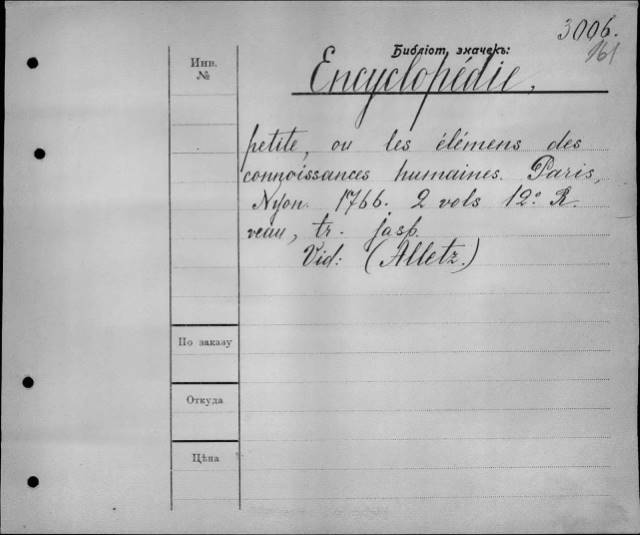 3006.
161
Библіот. значекъ:
Инв.
№
Encyclopédie,
petite, ou les élémens des
connoissances humaines. Paris,
Nyon. 1766. 2 vols 12º R.
veau, tr. jasp.
Vid: (Alletz.)
По заказу
Откуда
Цѣна